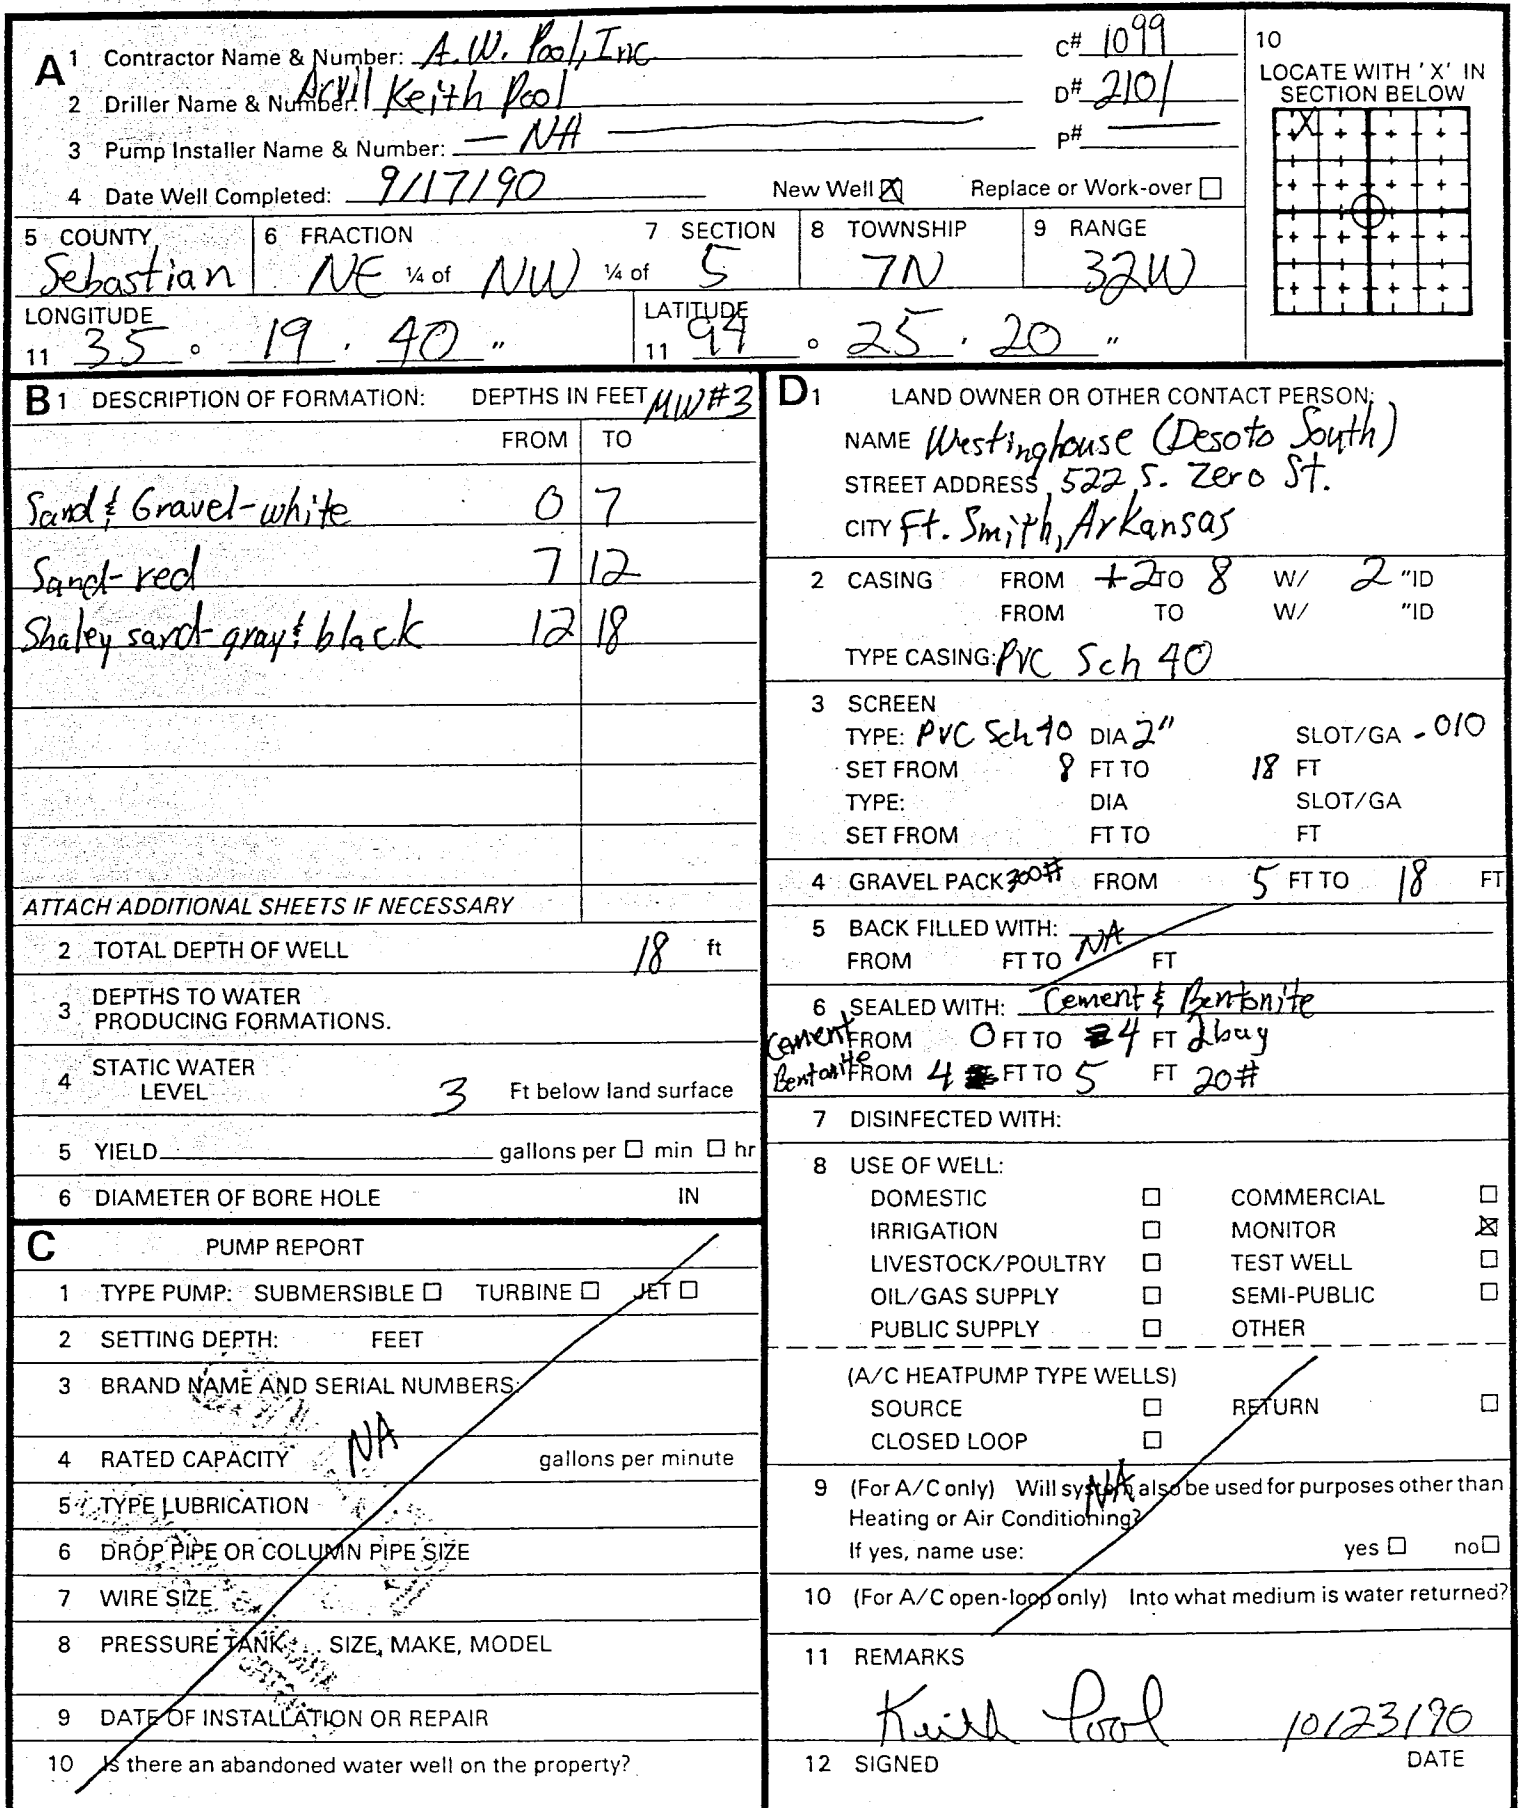 A 1 Contractor Name & Number: A.W. Pool, Inc C# 1099
2 Driller Name & Number: Arvil Keith Pool D# 2101
3 Pump Installer Name & Number: — NA — P# —
4 Date Well Completed: 9/17/90 New Well ☒ Replace or Work-over ☐
10
LOCATE WITH 'X' IN
SECTION BELOW
X
5 COUNTY 6 FRACTION 7 SECTION 8 TOWNSHIP 9 RANGE
Sebastian NE ¼ of NW ¼ of 5 7N 32W
LONGITUDE LATITUDE
11 35 ° 19 ' 40 " 11 94 ° 25 ' 20 "
B 1 DESCRIPTION OF FORMATION: DEPTHS IN FEET MW#3
FROM TO
Sand & Gravel-white 0 7
Sand-red 7 12
Shaley sand-gray & black 12 18
ATTACH ADDITIONAL SHEETS IF NECESSARY
2 TOTAL DEPTH OF WELL 18 ft
3 DEPTHS TO WATER
PRODUCING FORMATIONS.
4 STATIC WATER
LEVEL 3 Ft below land surface
5 YIELD gallons per ☐ min ☐ hr
6 DIAMETER OF BORE HOLE IN
C PUMP REPORT
1 TYPE PUMP: SUBMERSIBLE ☐ TURBINE ☐ JET ☐
2 SETTING DEPTH: FEET
3 BRAND NAME AND SERIAL NUMBERS:
NA
4 RATED CAPACITY gallons per minute
5 TYPE LUBRICATION
6 DROP PIPE OR COLUMN PIPE SIZE
7 WIRE SIZE
8 PRESSURE TANK SIZE, MAKE, MODEL
9 DATE OF INSTALLATION OR REPAIR
10 Is there an abandoned water well on the property?
D 1 LAND OWNER OR OTHER CONTACT PERSON:
NAME Westinghouse (Desoto South)
STREET ADDRESS 522 S. Zero St.
CITY Ft. Smith, Arkansas
2 CASING FROM +2 TO 8 W/ 2 "ID
FROM TO W/ "ID
TYPE CASING: PVC Sch 40
3 SCREEN
TYPE: PVC Sch 40 DIA 2" SLOT/GA .010
SET FROM 8 FT TO 18 FT
TYPE: DIA SLOT/GA
SET FROM FT TO FT
4 GRAVEL PACK 300# FROM 5 FT TO 18 FT
5 BACK FILLED WITH: NA
FROM FT TO FT
6 SEALED WITH: Cement & Bentonite
Cement FROM 0 FT TO 4 FT 2bag
Bentonite FROM 4 FT TO 5 FT 20#
7 DISINFECTED WITH:
8 USE OF WELL:
DOMESTIC ☐ COMMERCIAL ☐
IRRIGATION ☐ MONITOR ☒
LIVESTOCK/POULTRY ☐ TEST WELL ☐
OIL/GAS SUPPLY ☐ SEMI-PUBLIC ☐
PUBLIC SUPPLY ☐ OTHER
(A/C HEATPUMP TYPE WELLS)
SOURCE ☐ RETURN ☐
CLOSED LOOP ☐
NA
9 (For A/C only) Will system also be used for purposes other than
Heating or Air Conditioning?
If yes, name use: yes ☐ no ☐
10 (For A/C open-loop only) Into what medium is water returned?
11 REMARKS
Keith Pool 10/23/90
12 SIGNED DATE